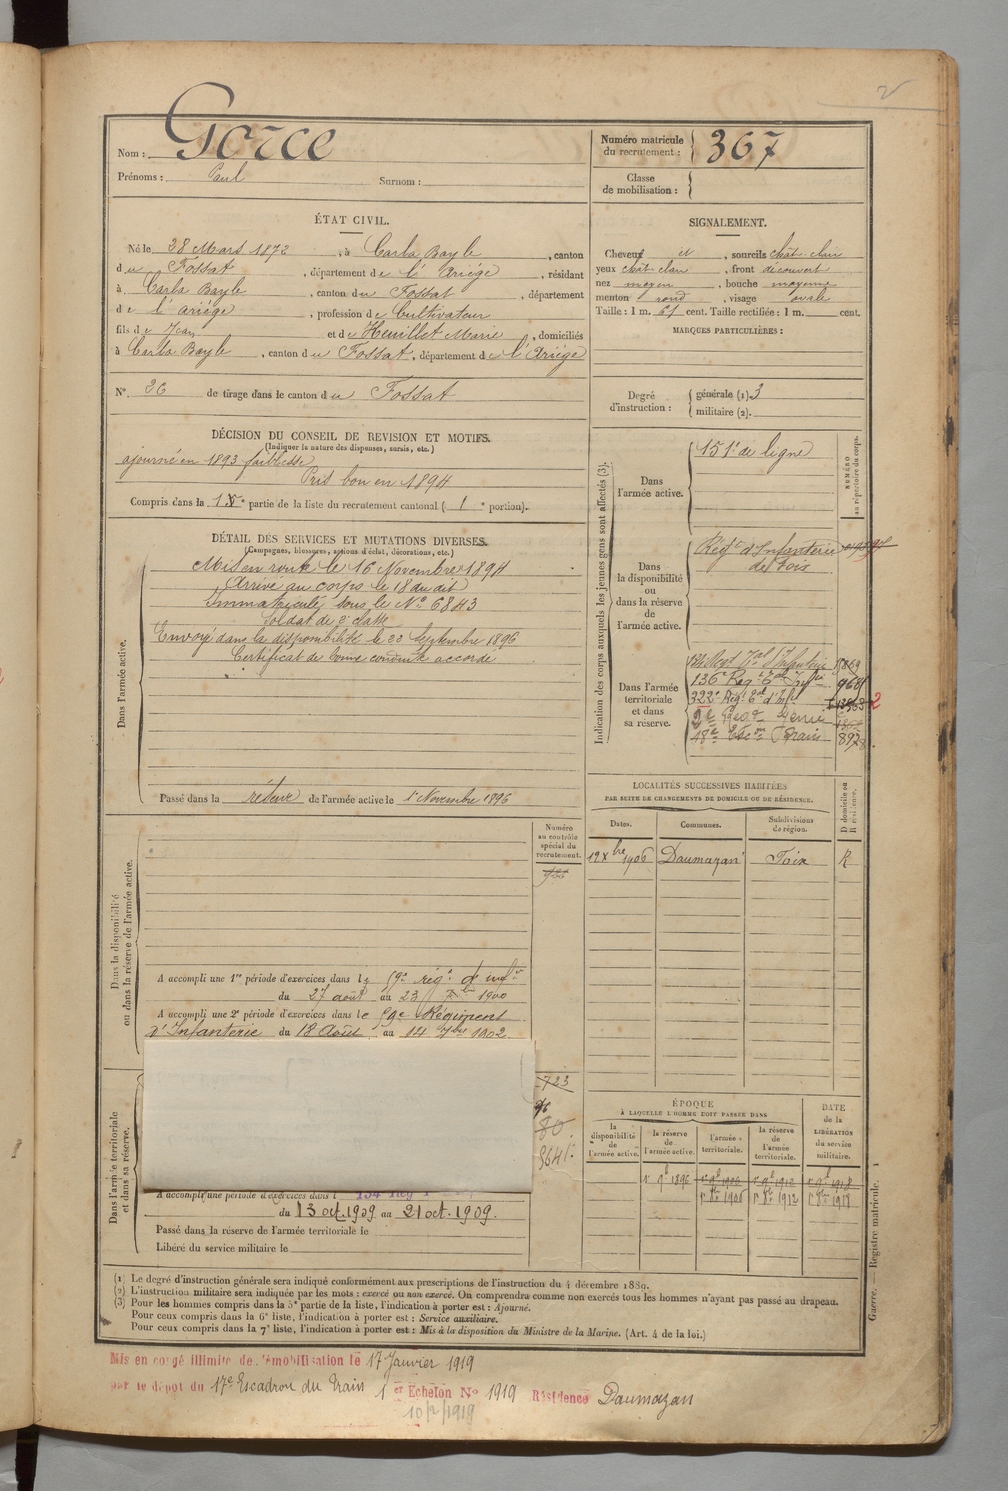 Nom : Gorce
Prénoms : Paul Surnom :
Numéro matricule du recrutement : 367
Classe de mobilisation :
ÉTAT CIVIL.
Né le 28 Mars 1872, à Carla Bayle, canton
du Fossat, département de l'Ariège, résidant
à Carla Bayle, canton du Fossat, département
de l'Ariège, profession de Cultivateur
fils de Jean et de Heuillet Marie, domiciliés
à Carla Bayle, canton du Fossat, département de l'Ariège
N° 26 de tirage dans le canton du Fossat
SIGNALEMENT.
Cheveux et, sourcils chât. clair
yeux chât. clair, front découvert
nez moyen, bouche moyenne
menton rond, visage ovale
Taille : 1 m. 61 cent. Taille rectifiée : 1 m. cent.
MARQUES PARTICULIÈRES :
Degré d'instruction : générale (1). 3
militaire (2).
DÉCISION DU CONSEIL DE REVISION ET MOTIFS.
(Indiquer la nature des dispenses, sursis, etc.)
ajourné en 1893 faiblesse
Pris bon en 1894
Compris dans la 1e partie de la liste du recrutement cantonal ( 1e portion).
DÉTAIL DES SERVICES ET MUTATIONS DIVERSES.
(Campagnes, blessures, actions d'éclat, décorations, etc.)
Dans l'armée active.
Mis en route le 16 Novembre 1894
Arrivé au corps le 18 du dit
Immatriculé sous le N° 6843
Soldat de 2e classe
Envoyé dans la disponibilité le 22 Septembre 1896
Certificat de bonne conduite accordé
Passé dans la réserve de l'armée active le 1er Novembre 1896
Indication des corps auxquels les jeunes gens sont affectés (3).
NUMÉRO au répertoire du corps.
Dans l'armée active.
151e de ligne
Dans la disponibilité ou dans la réserve de l'armée active.
Régt d'Infanterie
de Foix
Dans l'armée territoriale et dans sa réserve.
136e Régt Tal Infie 968
322e Régt Tal d'Infie
2e Régt Génie
18e Escon Train 8978
LOCALITÉS SUCCESSIVES HABITÉES
PAR SUITE DE CHANGEMENTS DE DOMICILE OU DE RÉSIDENCE.
Dates. Communes. Subdivisions de région. D domicile ou R résidence.
12 Xbre 1906 Daumazan Foix R
Dans la disponibilité ou dans la réserve de l'armée active.
Numéro au contrôle spécial du recrutement.
A accompli une 1re période d'exercices dans le 59e régt d'infie
du 27 août au 23 7bre 1900
A accompli une 2e période d'exercices dans le 59e Régiment
d'Infanterie du 18 Août au 14 7bre 1902.
Dans l'armée territoriale et dans sa réserve.
723
80.
A accompli une période d'exercices dans l
du 13 oct. 1909 au 21 oct. 1909.
Passé dans la réserve de l'armée territoriale le
Libéré du service militaire le
ÉPOQUE
À LAQUELLE L'HOMME DOIT PASSER DANS
la disponibilité de l'armée active. la réserve de l'armée active. l'armée territoriale. la réserve de l'armée territoriale.
DATE de la LIBÉRATION du service militaire.
1er 9bre 1896
(1) Le degré d'instruction générale sera indiqué conformément aux prescriptions de l'instruction du 4 décembre 1889.
(2) L'instruction militaire sera indiquée par les mots : exercé ou non exercé. On comprendra comme non exercés tous les hommes n'ayant pas passé au drapeau.
(3) Pour les hommes compris dans la 5e partie de la liste, l'indication à porter est : Ajourné.
Pour ceux compris dans la 6e liste, l'indication à porter est : Service auxiliaire.
Pour ceux compris dans la 7e liste, l'indication à porter est : Mis à la disposition du Ministre de la Marine. (Art. 4 de la loi.)
Guerre. — Registre matricule. 1
Mis en congé illimité de démobilisation le 17 Janvier 1919
par le dépôt du 17e Escadron du Train 1er Echelon N° 1919 Résidence Daumazan
10/2/1919